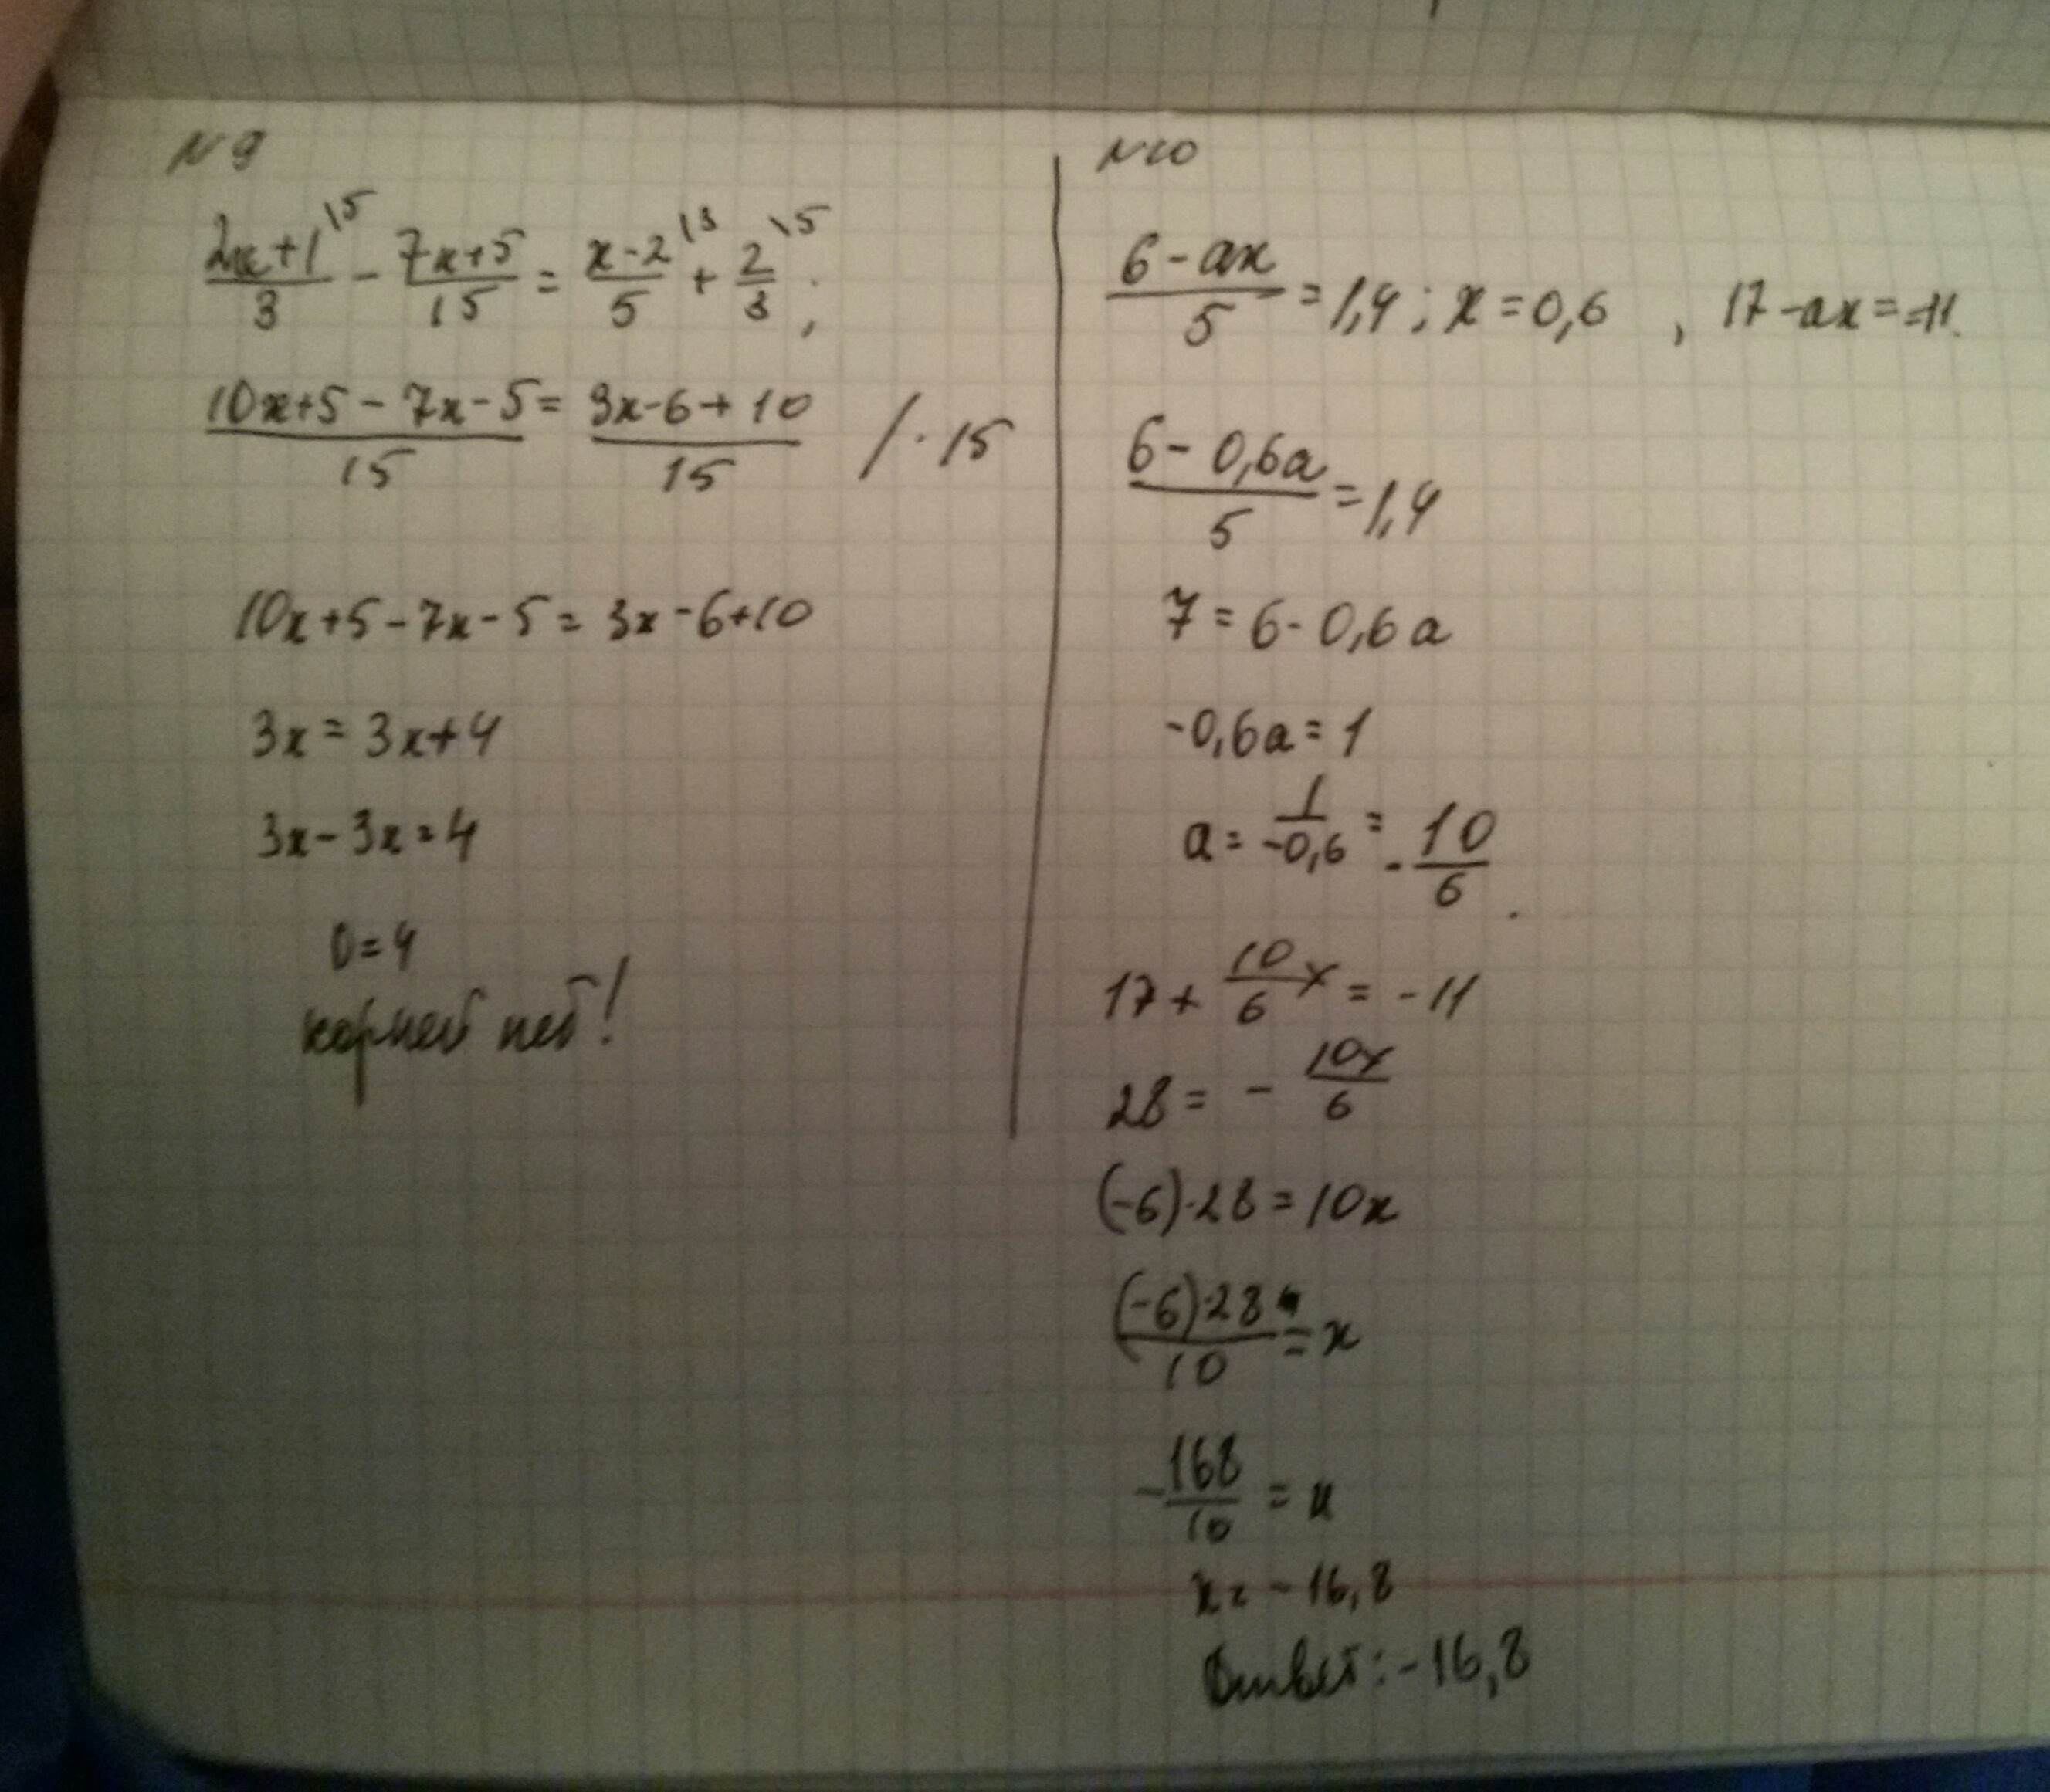 N 9
(2x+1)/3 \5 - (7x+5)/15 = (x-2)/5 \3 + 2/3 \5 ;
(10x+5-7x-5)/15 = (3x-6+10)/15 / · 15
10x+5-7x-5=3x-6+10
3x=3x+4
3x-3x=4
0=4
корней нет!
N10
(6-ax)/5 =1,4; x=0,6 , 17-ax=-11.
(6-0,6a)/5 =1,4
7=6-0,6a
-0,6a=1
a= 1/-0,6 = - 10/6 .
17+ 10/6 x = -11
28= - 10x/6
(-6)·28=10x
(-6)·28/10 = x
- 168/10 = x
x=-16,8
Ответ: -16,8